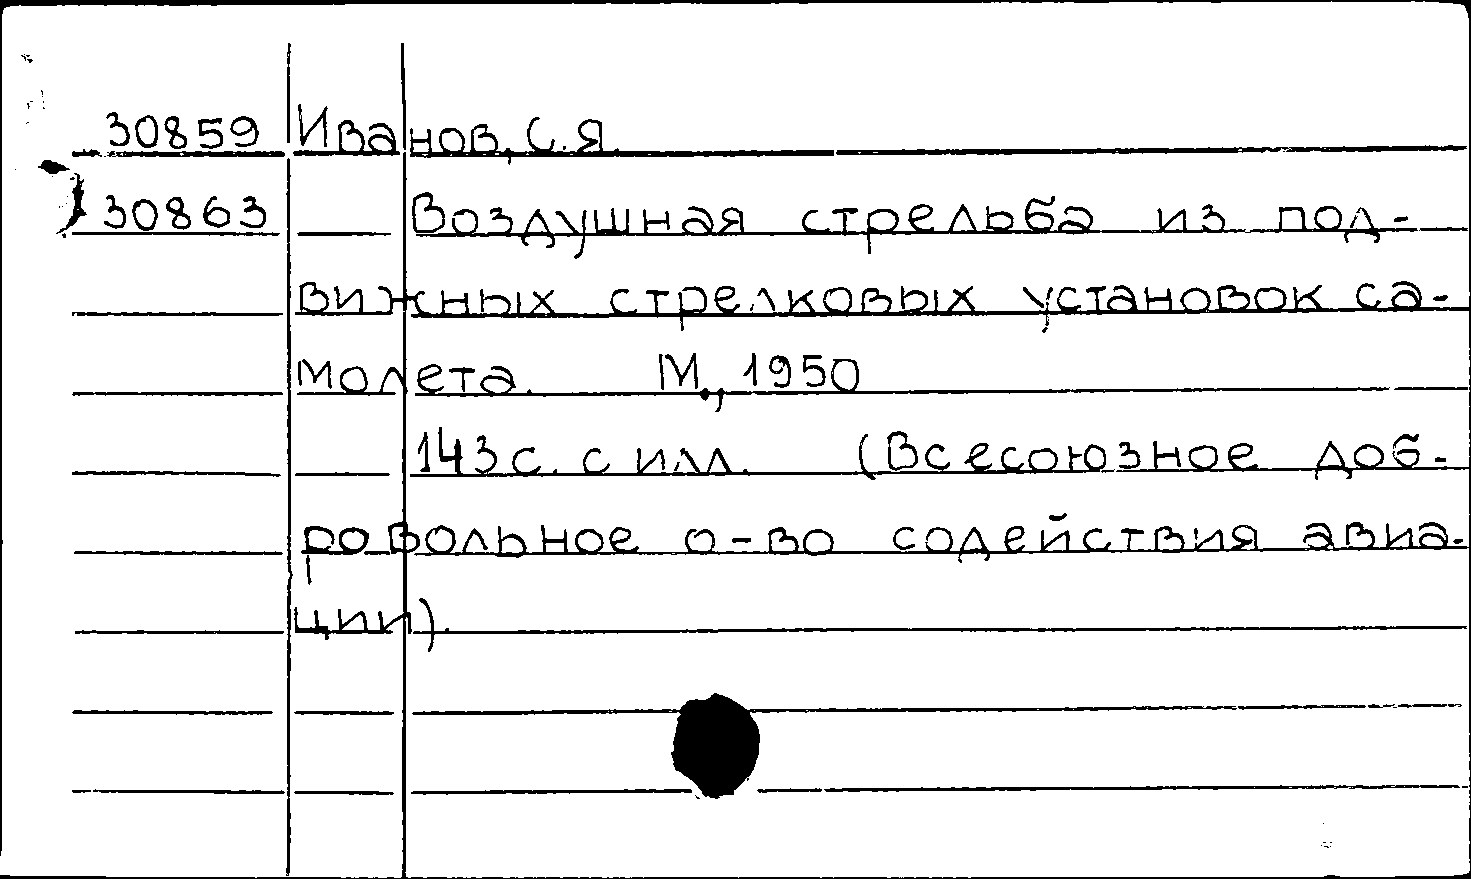 30859 Иванов, С.Я.
30863 Воздушная стрельба из под-
вижных стрелковых установок са-
молета. М., 1950
143 с. с илл. (Всесоюзное доб-
ровольное о-во содействия авиа-
ции).